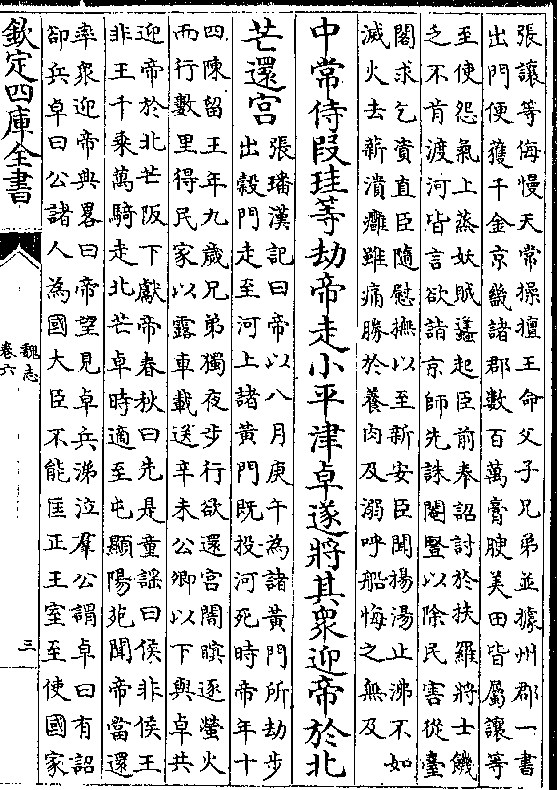 張讓等侮慢天常操擅王命父子兄弟並據州郡一書
出門便獲千金京畿諸郡數百萬膏腴美田皆屬讓等
至使怨氣上蒸妖賊蠭起臣前奉詔討於扶羅將士饑
乏不肯渡河皆言欲詣京師先誅閹豎以除民害從臺
閣求乞資直臣隨慰撫以至新安臣聞揚湯止沸不如
滅火去薪潰癰雖痛勝於養肉及溺呼船悔之無及
中常侍段珪等劫帝走小平津卓遂將其衆迎帝於北
芒還宮
張璠漢記曰帝以八月庚午為諸黃門所劫步
出穀門走至河上諸黃門既投河死時帝年十
四陳留王年九歲兄弟獨夜步行欲還宮闇暝逐螢火
而行數里得民家以露車載送辛未公卿以下與卓共
迎帝於北芒阪下獻帝春秋曰先是童謠曰侯非侯王
非王千乘萬騎走北芒卓時適至屯顯陽苑聞帝當還
率衆迎帝典畧曰帝望見卓兵涕泣羣公謂卓曰有詔
卻兵卓曰公諸人為國大臣不能匡正王室至使國家
欽定四庫全書
魏志
卷六
三